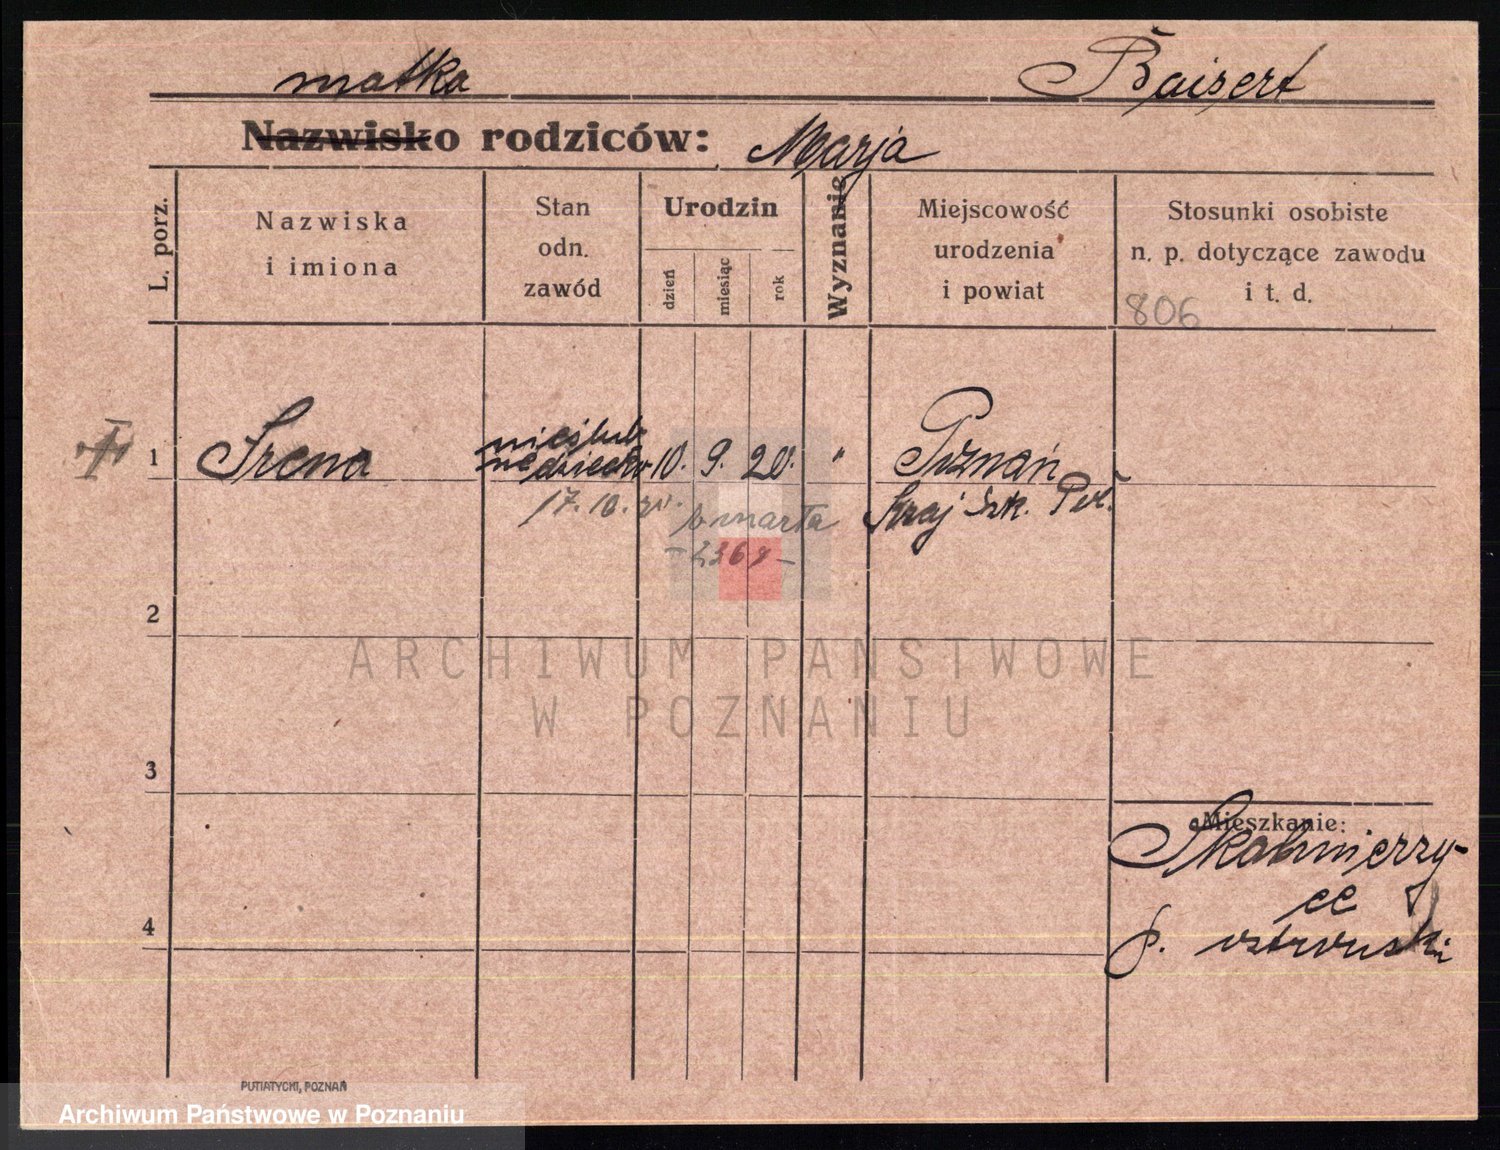 matka
Baisert
Nazwisko rodziców: Marja
L. porz.
Nazwiska
i imiona
Stan
odn.
zawód
Urodzin
dzień
miesiąc
rok
Wyznanie
Miejscowość
urodzenia
i powiat
Stosunki osobiste
n. p. dotyczące zawodu
i t. d.
806
1
Irena
nieślub
dziecko
10. 9. 20. "
Poznań
17. 10. 20. zmarła
Kraj Szk. Pol.
2
ARCHIWUM PAŃSTWOWE
W POZNANIU
3
Mieszkanie:
Skalmierzy-
ce
p. ostrowski
4
PUTIATYCKI, POZNAŃ
Archiwum Państwowe w Poznaniu